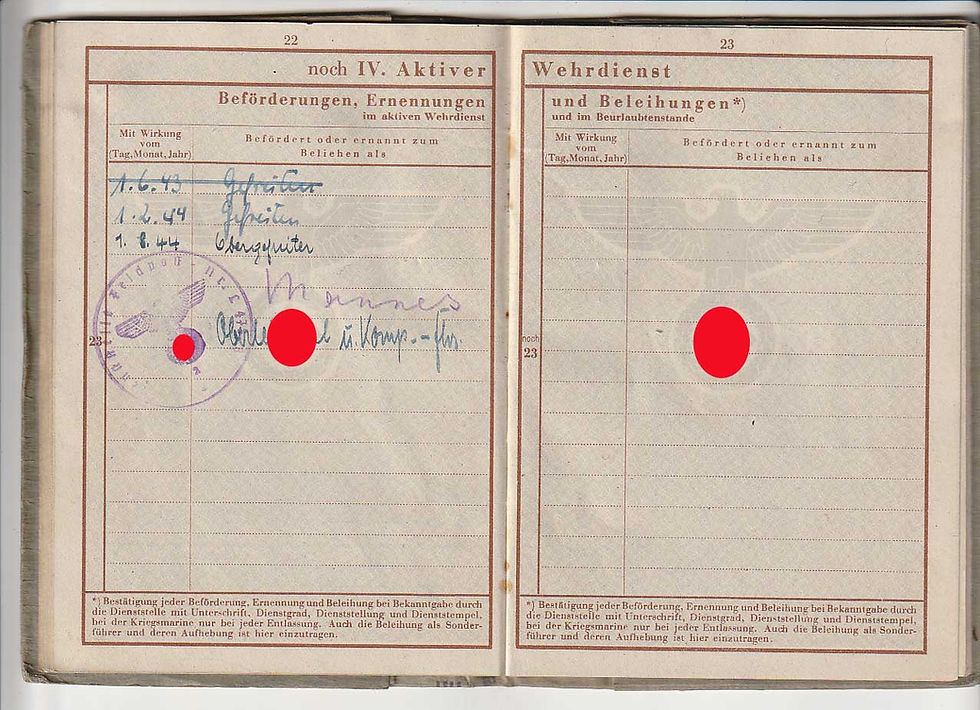 22
noch IV. Aktiver
Beförderungen, Ernennungen
im aktiven Wehrdienst
Mit Wirkung
vom
(Tag, Monat, Jahr)
Befördert oder ernannt zum
Beliehen als
1.6.43 Gefreiten
1.2.44 Gefreiten
1.8.44 Obergefreiter
Feldpost - Nr.
Mannes
23 u. Komp.-Fhr.
*) Bestätigung jeder Beförderung, Ernennung und Beleihung bei Bekanntgabe durch
die Dienststelle mit Unterschrift, Dienstgrad, Dienststellung und Dienststempel,
bei der Kriegsmarine nur bei jeder Entlassung. Auch die Beleihung als Sonder-
führer und deren Aufhebung ist hier einzutragen.
23
Wehrdienst
und Beleihungen*)
und im Beurlaubtenstande
Mit Wirkung
vom
(Tag, Monat, Jahr)
Befördert oder ernannt zum
Beliehen als
noch
23
*) Bestätigung jeder Beförderung, Ernennung und Beleihung bei Bekanntgabe durch
die Dienststelle mit Unterschrift, Dienstgrad, Dienststellung und Dienststempel,
bei der Kriegsmarine nur bei jeder Entlassung. Auch die Beleihung als Sonder-
führer und deren Aufhebung ist hier einzutragen.